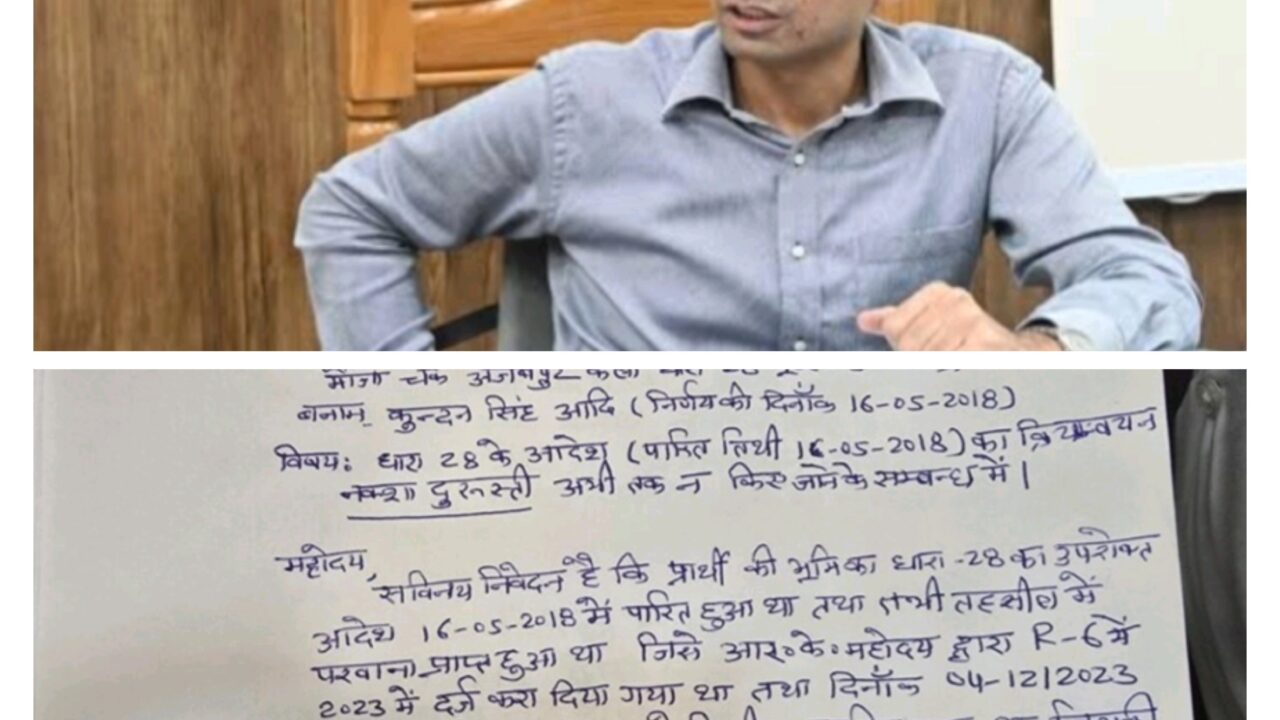 मौजा चक अजबपुर कलां
बनाम कुन्दन सिंह आदि (निर्णय की दिनाँक 16-05-2018)
विषय: धारा 28 के आदेश (पारित तिथी 16-05-2018) का क्रियान्वयन
नक्शा दुरुस्ती अभी तक न किए जाने के सम्बन्ध में।
महोदय,
सविनय निवेदन है कि प्रार्थी की भूमि का धारा -28 का उपरोक्त
आदेश 16-05-2018 में पारित हुआ था तथा तभी तहसील में
परवाना प्राप्त हुआ था जिसे आर०के० महोदय द्वारा R-6 में
2023 में दर्ज करा दिया गया था तथा दिनाँक 04-12/2023